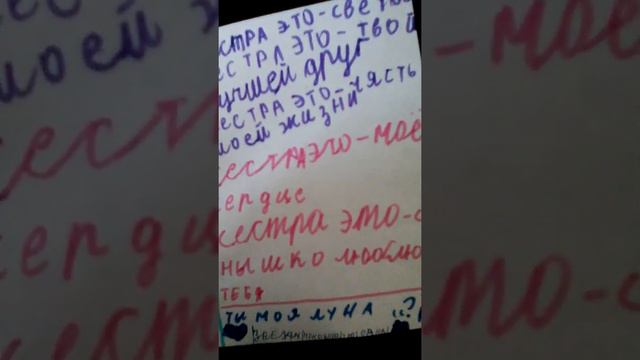 СЕСТРА ЭТО-СВЕТ
МОЕЙ ЖИЗНИ
СЕСТРА ЭТО-ТВОЙ
ЛУЧШЕЙ ДРУГ
СЕСТРА ЭТО-ЧЯСТЬ
МОЕЙ ЖИЗНИ
сестра это-моё
сердце
сестра это-с
нышко люблю
ТЕБЯ
ТЫ МОЯ ЛУНА